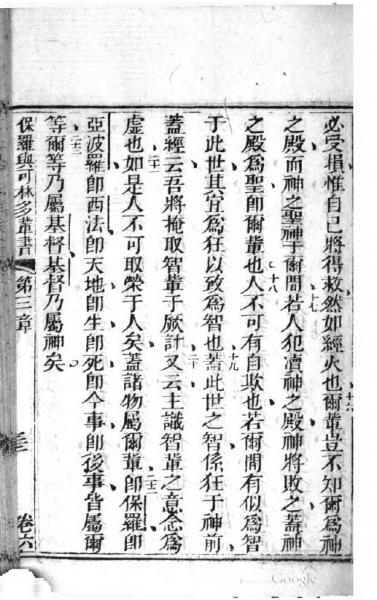 必受損惟自己將得救然如經火也爾輩豈不知爾爲神
十六
之殿而神之聖神于爾間若人犯瀆神之殿神將敗之蓋神
十七
之殿爲聖卽爾輩也人不可有自欺也若爾間有似爲智
十八
于此世其宜爲狂以致爲智也蓋此世之智係狂于神前
十九
蓋經云吾將掩取智輩于厥計又云主識智輩之意念爲
二十
虛也如是人不可取榮于人矣蓋諸物屬爾輩卽保羅卽
二十一
二十二
亞波羅卽西法卽天地卽生卽死卽今事卽後事皆屬爾
等爾等乃屬基督基督乃屬神矣
二十三
保羅與可林多輩書
第三章
卷六
Google